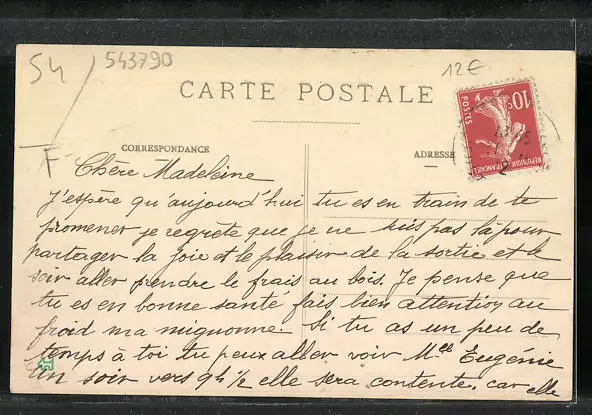 54
543790
12€
CARTE POSTALE
10c
POSTES
REPUBLIQUE FRANÇAISE
CORRESPONDANCE
ADRESSE
F
Chère Madeleine
J'espère qu'aujourd'hui tu es en train de te
promener je regrête que je ne suis pas là pour
partager la joie et le plaisir de la sortie et le
soir aller prendre le frais au bois. Je pense que
tu es en bonne santé fais bien attention au
froid ma mignonne. Si tu as un peu de
temps à toi tu peux aller voir Mell Eugénie
un soir vers 9h ½ elle sera contente. car elle